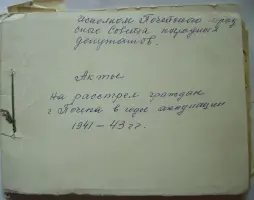 Исполком Почепского город
ского Совета народных
депутатов.
Акты
на расстрел граждан
г. Почепа в годы оккупации
1941 – 43 гг.